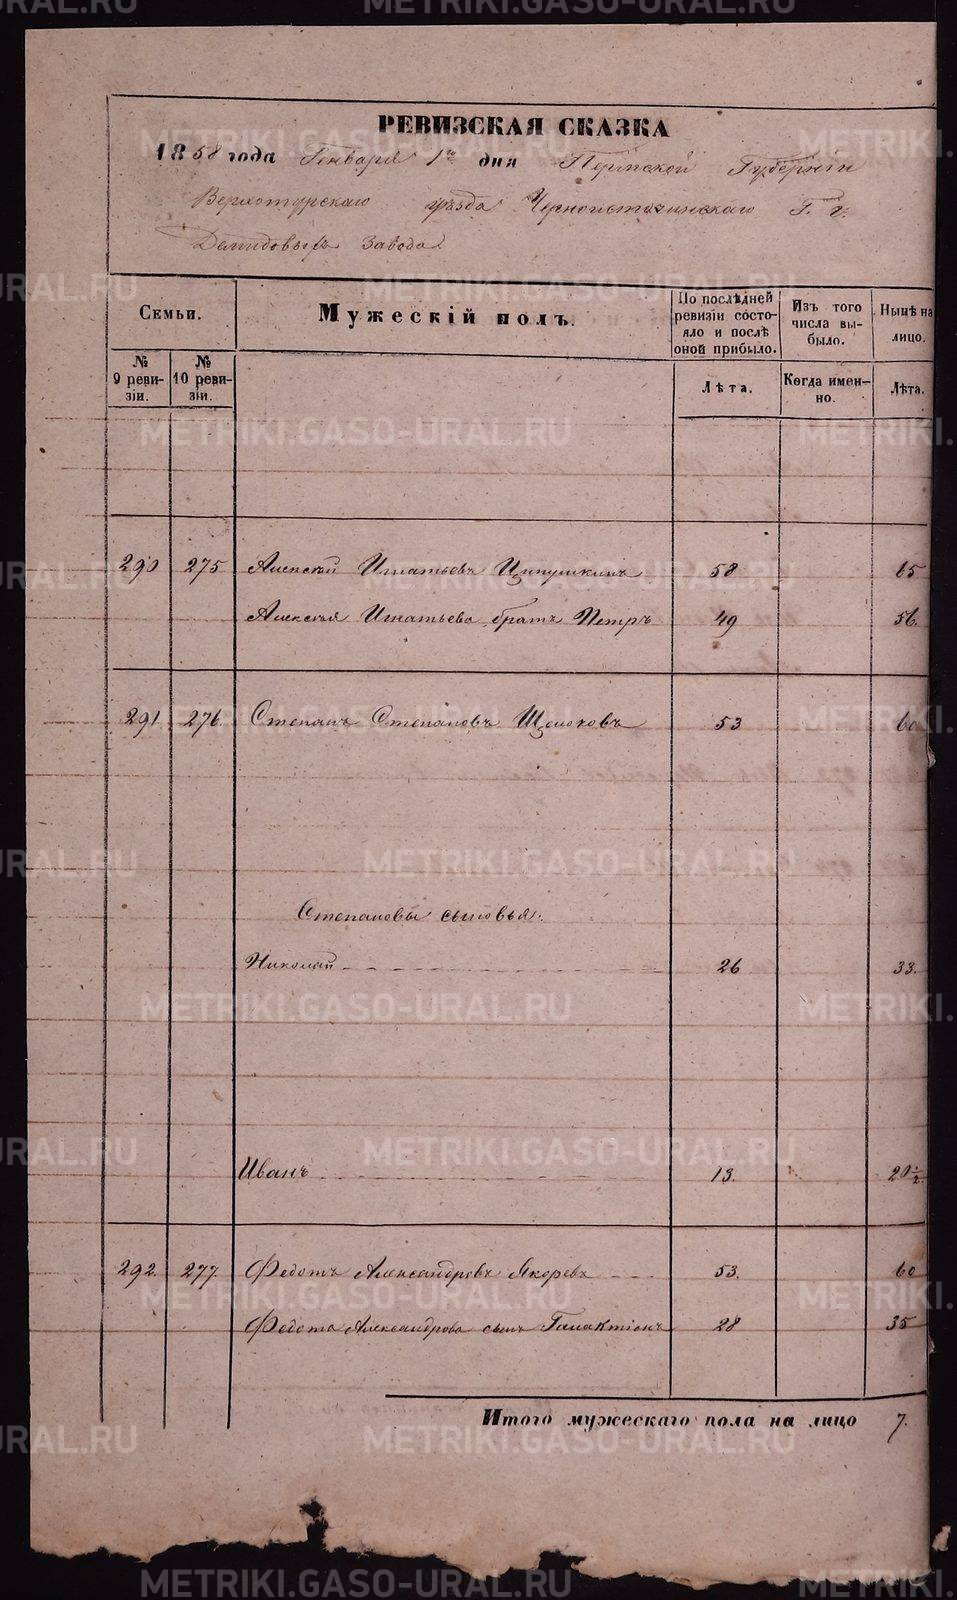 РЕВИЗСКАЯ СКАЗКА
1858 года Генваря 1го дня Пермской Губерніи
Верхотурскаго уѣзда Черноисточинскаго Г. г.
Демидовыхъ завода
Семьи.
Мужескій полъ.
По послѣдней ревизіи состояло и послѣ оной прибыло.
Изъ того числа выбыло.
Нынѣ на лицо.
№ 9 ревизіи.
№ 10 ревизіи.
Лѣта.
Когда именно.
Лѣта.
290 275 Алексѣй Игнатьевъ 58 65
Алексѣя Игнатьева братъ Петръ 49 56.
291. 276. Степанъ Степановъ Щелоковъ 53 60
Степановы сыновья:
Николай 26 33.
Иванъ 13. 20 1/2
292. 277. Федотъ Александровъ Якоревъ 53. 60
Федота Александрова сынъ Галактіонъ 28 35
Итого мужескаго пола на лицо 7.
METRIKI.GASO-URAL.RU